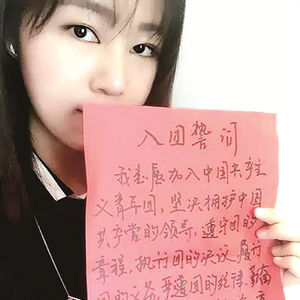 入团誓词
我志愿加入中国共产主
义青年团，坚决拥护中国
共产党的领导，遵守团的
章程，执行团的决议，履行
团的义务，严守团的纪律，勤奋